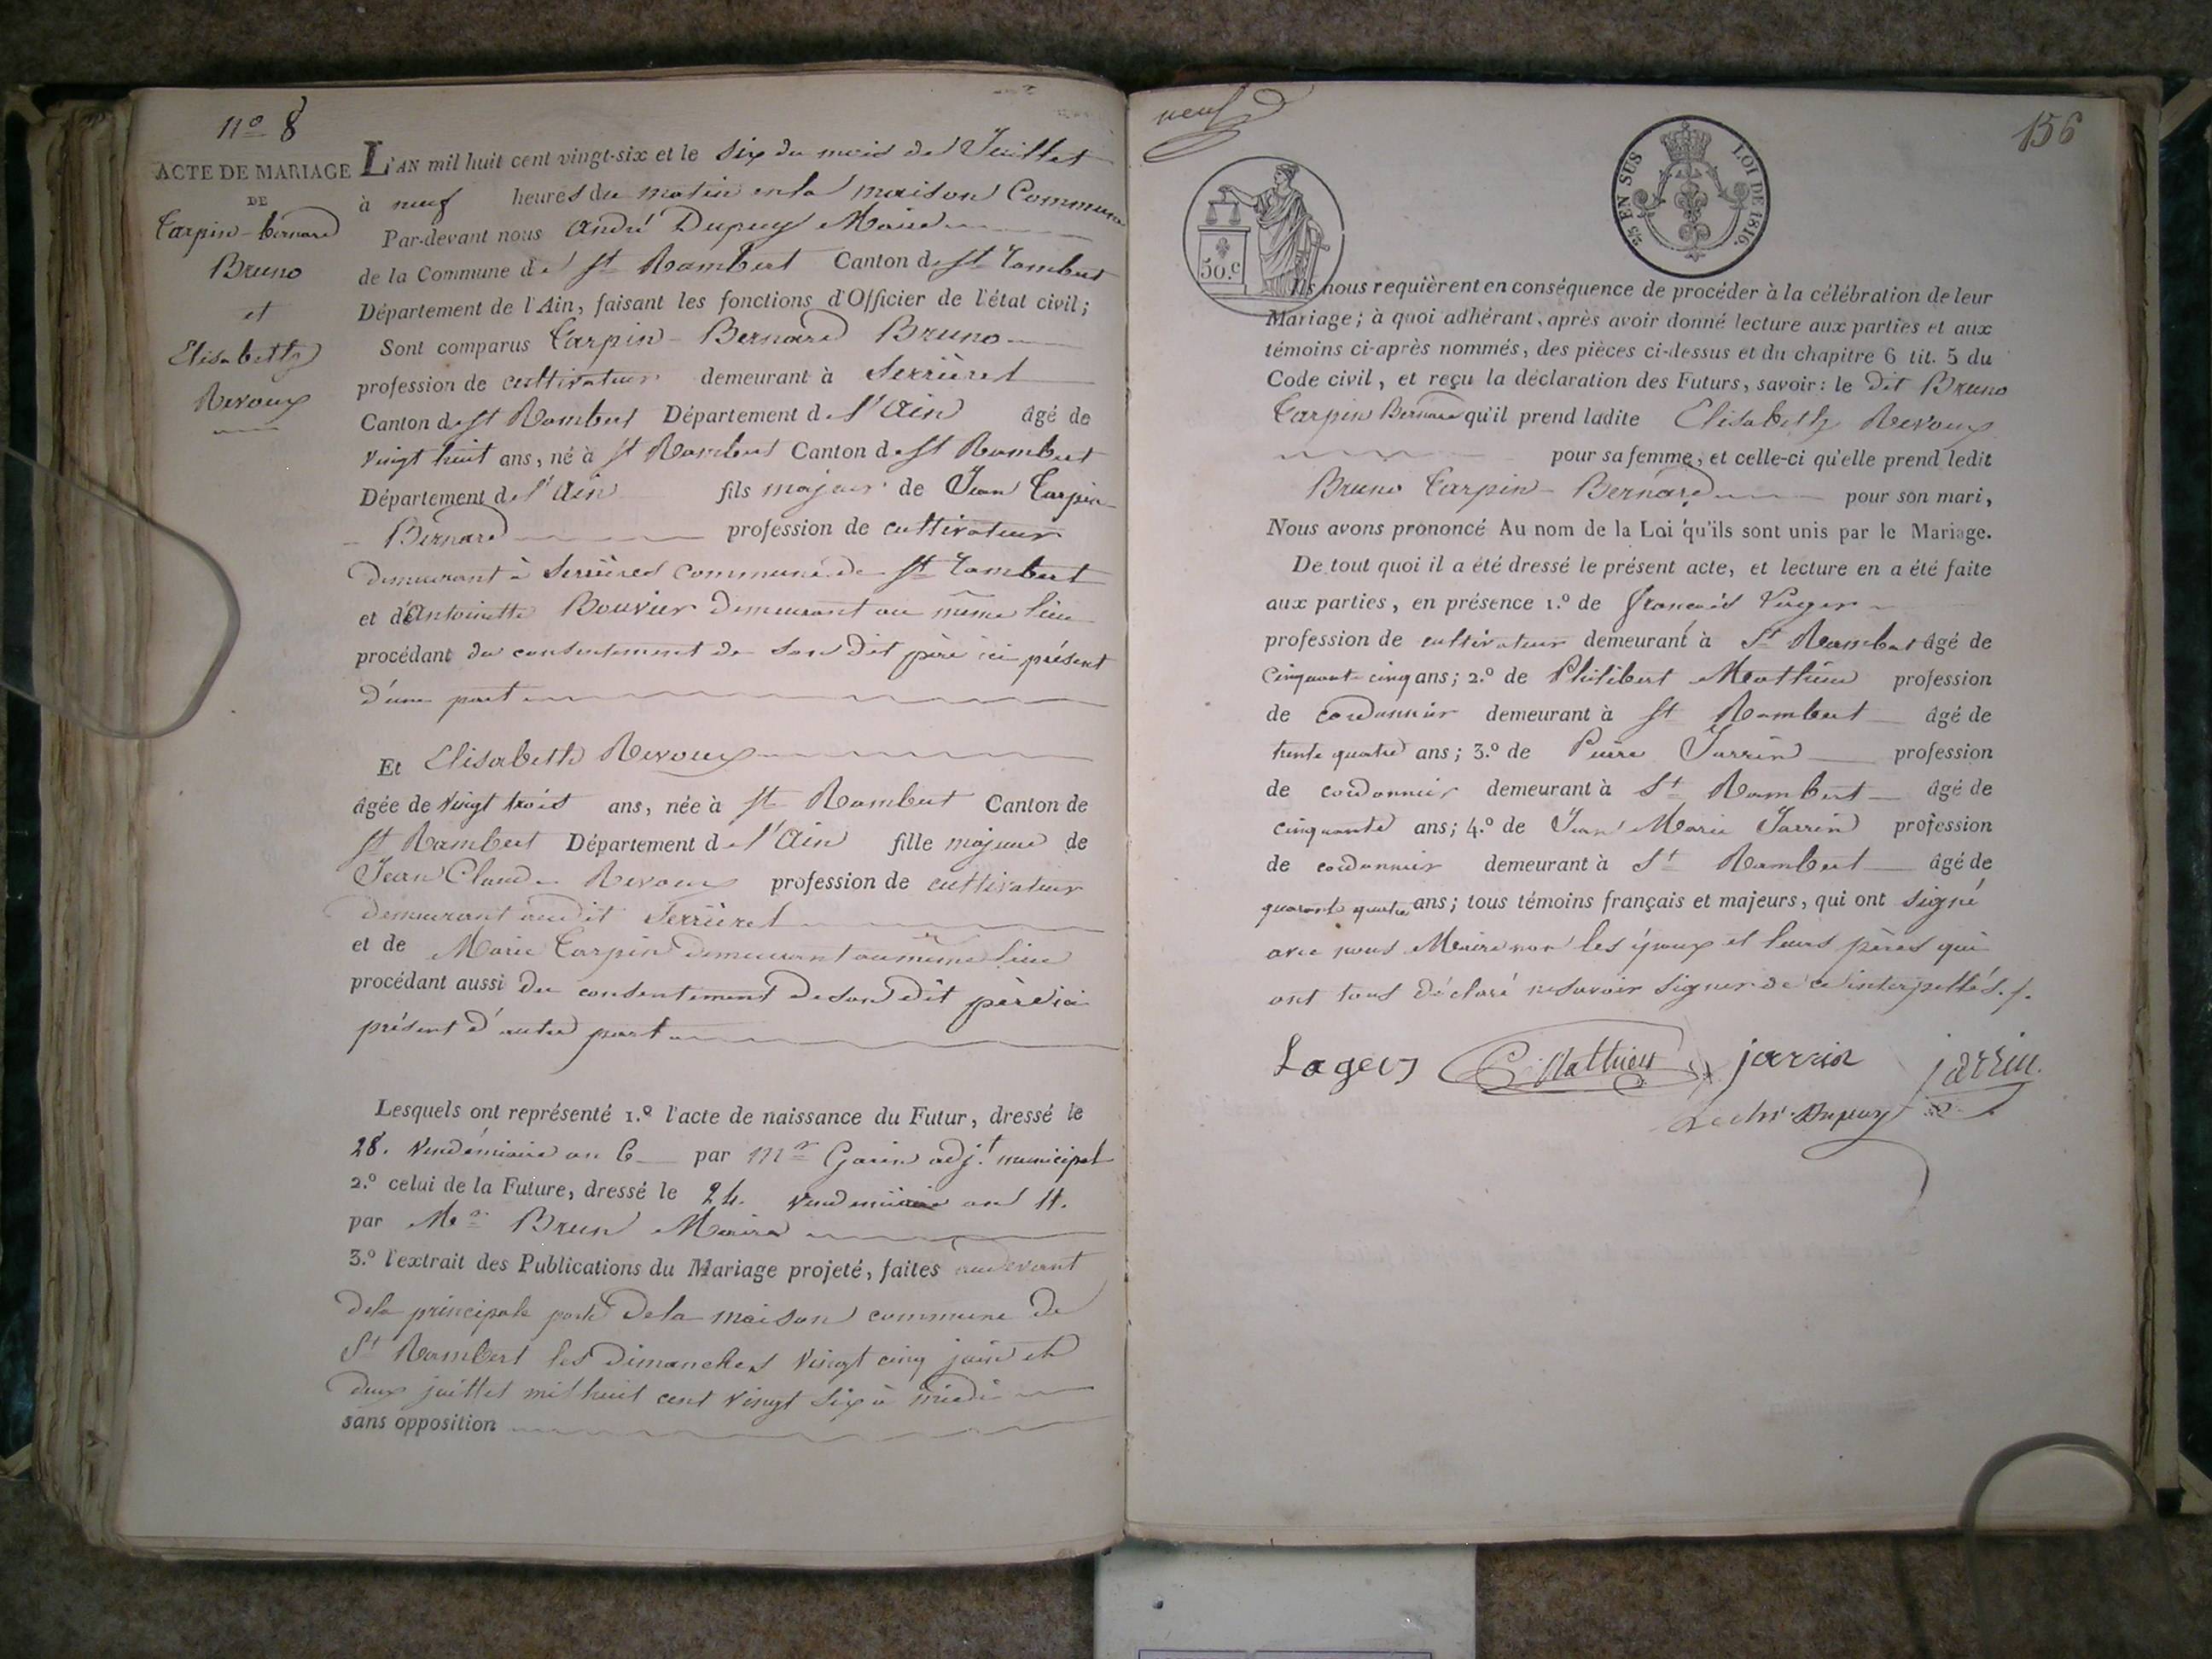 nº 8
ACTE DE MARIAGE
DE
Carpin-bernard
Bruno
et
Elisabeth
Revoux
L'AN mil huit cent vingt-six et le six du mois de Juillet
à neuf heures du matin en la maison Commune
Par-devant nous André Dupuy Maire
de la Commune de St Rambert Canton de St Rambert
Département de l'Ain, faisant les fonctions d'Officier de l'état civil;
Sont comparus Carpin-Bernard Bruno
profession de cultivateur demeurant à Serrières
Canton de St Rambert Département de l'Ain âgé de
vingt huit ans, né à St Rambert Canton de St Rambert
Département de l'Ain fils majeur de Jean Carpin
-Bernard profession de cultivateur
demeurant à Serrières commune de St Rambert
et d'Antoinette Bouvier demeurant au même lieu
procédant du consentement de son dit père ici présent
d'une part
Et Elisabeth Revoux
âgée de vingt trois ans, née à St Rambert Canton de
St Rambert Département de l'Ain fille majeure de
Jean Claude Revoux profession de cultivateur
demeurant audit Serrières
et de Marie Carpin demeurant au même lieu
procédant aussi du consentement de son dit père ici
présent d'autre part
Lesquels ont représenté 1.º l'acte de naissance du Futur, dressé le
28. Vendémiaire an 6 par Mr Garin adj.t municipal
2.º celui de la Future, dressé le 24. Vendémiaire an 11.
par Mr Brun Maire
3.º l'extrait des Publications du Mariage projeté, faites au devant
de la principale porte de la maison commune de
St Rambert les dimanches vingt cinq juin et
deux juillet mil huit cent vingt six à midi
sans opposition
neuf
156
2/5 EN SUS LOI DE 1816.
50.c
Ils nous requièrent en conséquence de procéder à la célébration de leur
Mariage; à quoi adhérant, après avoir donné lecture aux parties et aux
témoins ci-après nommés, des pièces ci-dessus et du chapitre 6 tit. 5 du
Code civil, et reçu la déclaration des Futurs, savoir: le dit Bruno
Carpin Bernard qu'il prend ladite Elisabeth Revoux
pour sa femme, et celle-ci qu'elle prend ledit
Bruno Carpin-Bernard pour son mari,
Nous avons prononcé Au nom de la Loi qu'ils sont unis par le Mariage.
De tout quoi il a été dressé le présent acte, et lecture en a été faite
aux parties, en présence 1.º de François
profession de cultivateur demeurant à St Rambert âgé de
cinquante cinq ans; 2.º de Philibert Mathieu profession
de cordonnier demeurant à St Rambert âgé de
trente quatre ans; 3.º de Pierre Jarrin profession
de cordonnier demeurant à St Rambert âgé de
cinquante ans; 4.º de Jean Marie Jarrin profession
de cordonnier demeurant à St Rambert âgé de
quarante quatre ans; tous témoins français et majeurs, qui ont signé
avec nous Maire non les époux et leurs pères qui
ont tous déclaré ne savoir signer de ce interpellés.
Mathieu jarrin jarrin
Dupuy